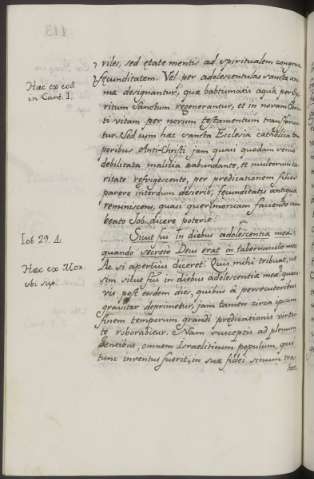 113
riles, sed etate mentis ad spiritualem congrua
fecunditatem. Vel per adolescentulas sanctæ ani
Hæc ex eod
ma designantur, quæ babtismatis aqua per Spi
in Cant. 1.
ritum Sanctum regenerantur, et in novam Chri
sti vitam per novum testamentum transforman
tur. Sed cum hæc sancta Ecclesia catholica tem
peribus Anti-Christi jam quasi quodam senio
debilitata, malitia habundante, et multorum cha
ritate refrigescente, per predicationem filios
parere interdum desierit, fecunditatis antiquæ
reminiscens, quasi querimoniam faciendo cum
beato Job dicere poterit:
Iob 29. 4.
Sicut fui in diebus adolescentiæ meæ
quando secreto Deus erat in tabernaculo meo
Hæc ex
Ac si apertius diceret: Quis mihi tribuat, ut
ubi sup.
sim sicut fui in diebus adolescentiæ meæ quam
vis post eosdem dies, quibus à persecutoribus
graviter deprimetur, jam tamen circa ipsum
finem temporum grandi predicationis virtu
te roborabitur. Nam susceptis ad plenum
gentibus, omnem Israeliticum populum, qui
tunc inventus fuerit, in suæ fidei sinum tra
het